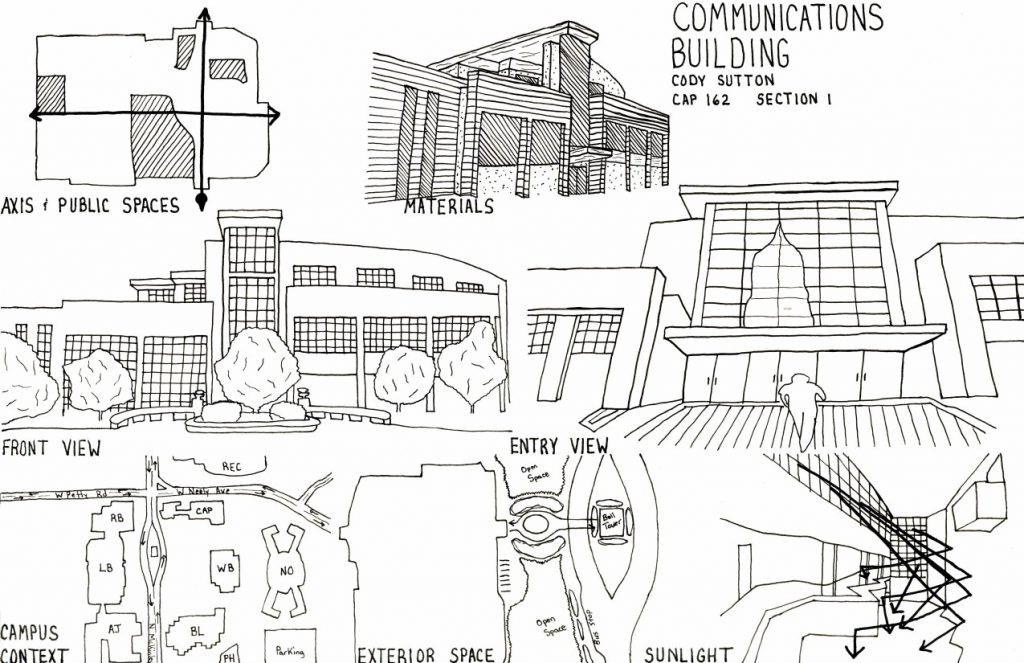 COMMUNICATIONS
BUILDING
CODY SUTTON
CAP 162 SECTION 1
AXIS & PUBLIC SPACES
MATERIALS
FRONT VIEW
ENTRY VIEW
REC
W Petty Rd
W Neely Ave
RB
CAP
LB
WB
NO
AJ
BL
PH
Parking
CAMPUS
CONTEXT
Open
Space
Bell
Tower
Open
Space
Bus Stop
EXTERIOR SPACE
SUNLIGHT